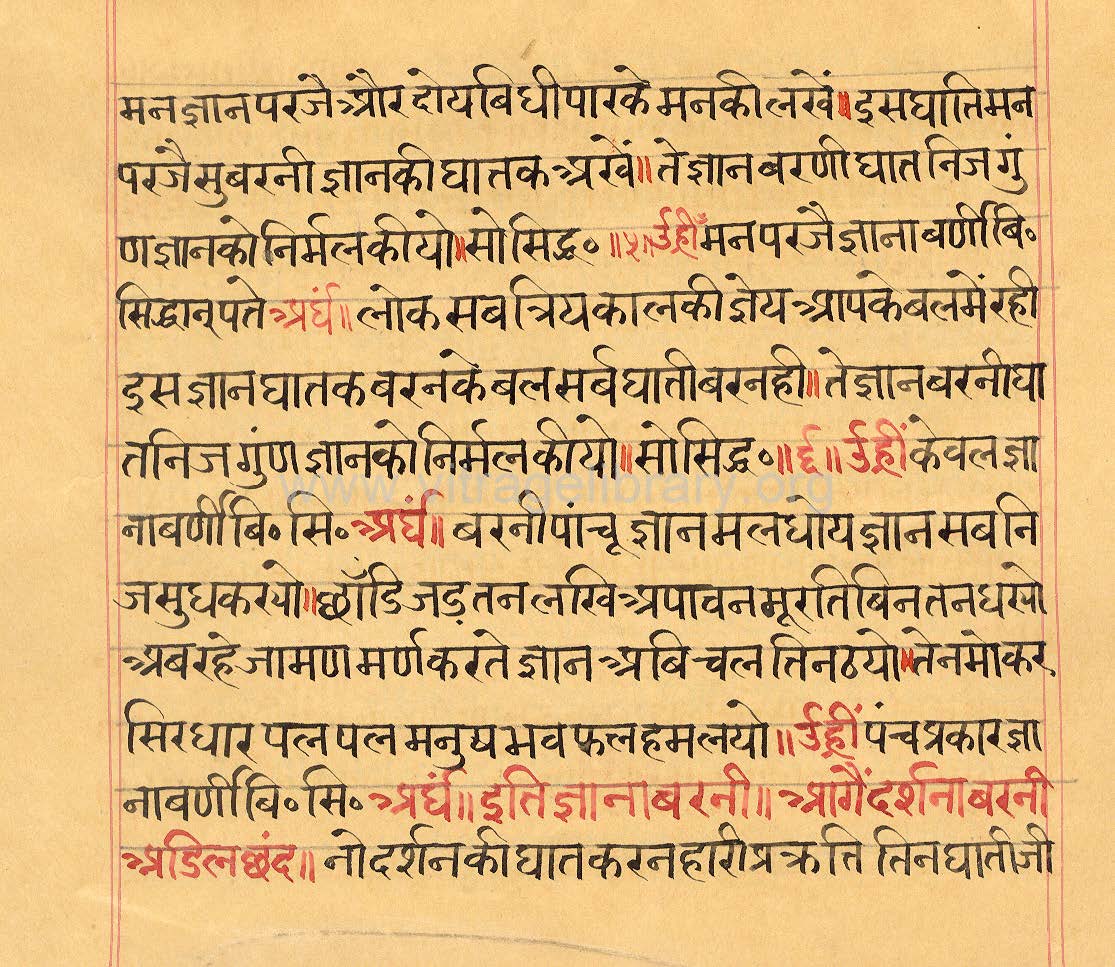 मनज्ञानपरजैऔरदोयबिधीपारकेमनकीलखें॥इसघातिमन
परजैसुबरनीज्ञानकीघातकअखें॥तेज्ञानबरणीघातनिजगुं
णज्ञानकोनिर्मलकीयो॥सोसिद्ध०॥५॥उँह्रीँमनपरजैज्ञानाबर्णीबि०
सिद्धान्पतेअर्घं॥लोकसबत्रियकालकीज्ञेयआपकेबलमेंरही
इसज्ञानघातकबरनकेबलसर्बघातीबरनही॥तेज्ञानबरनीघा
तनिजगुंणज्ञानकोनिर्मलकीयो॥सोसिद्ध०॥६॥उँह्रींकेवलज्ञा
www.vitragelibrary.org
नाबर्णीबि०सि०अर्घं॥बरनीपांचूज्ञानमलधोयज्ञानसबनि
जसुधकरयो॥छाँडिजड़तनलखिअपावनमूरतिबिनतनधरयो
अबरहेजामणमर्णकरतेज्ञानअबिचलतिनठयो॥तेनमोकर
सिरधारपलपलमनुयभवफलहमलयो॥उँह्रींपंचप्रकारज्ञा
नाबर्णीबि०सि०अर्घं॥इतिज्ञानाबरनी॥आगैंदर्शनाबरनी
अडिलछंद॥नोदर्शनकीघातकरनहारीप्रक्रतितिनघातीजी